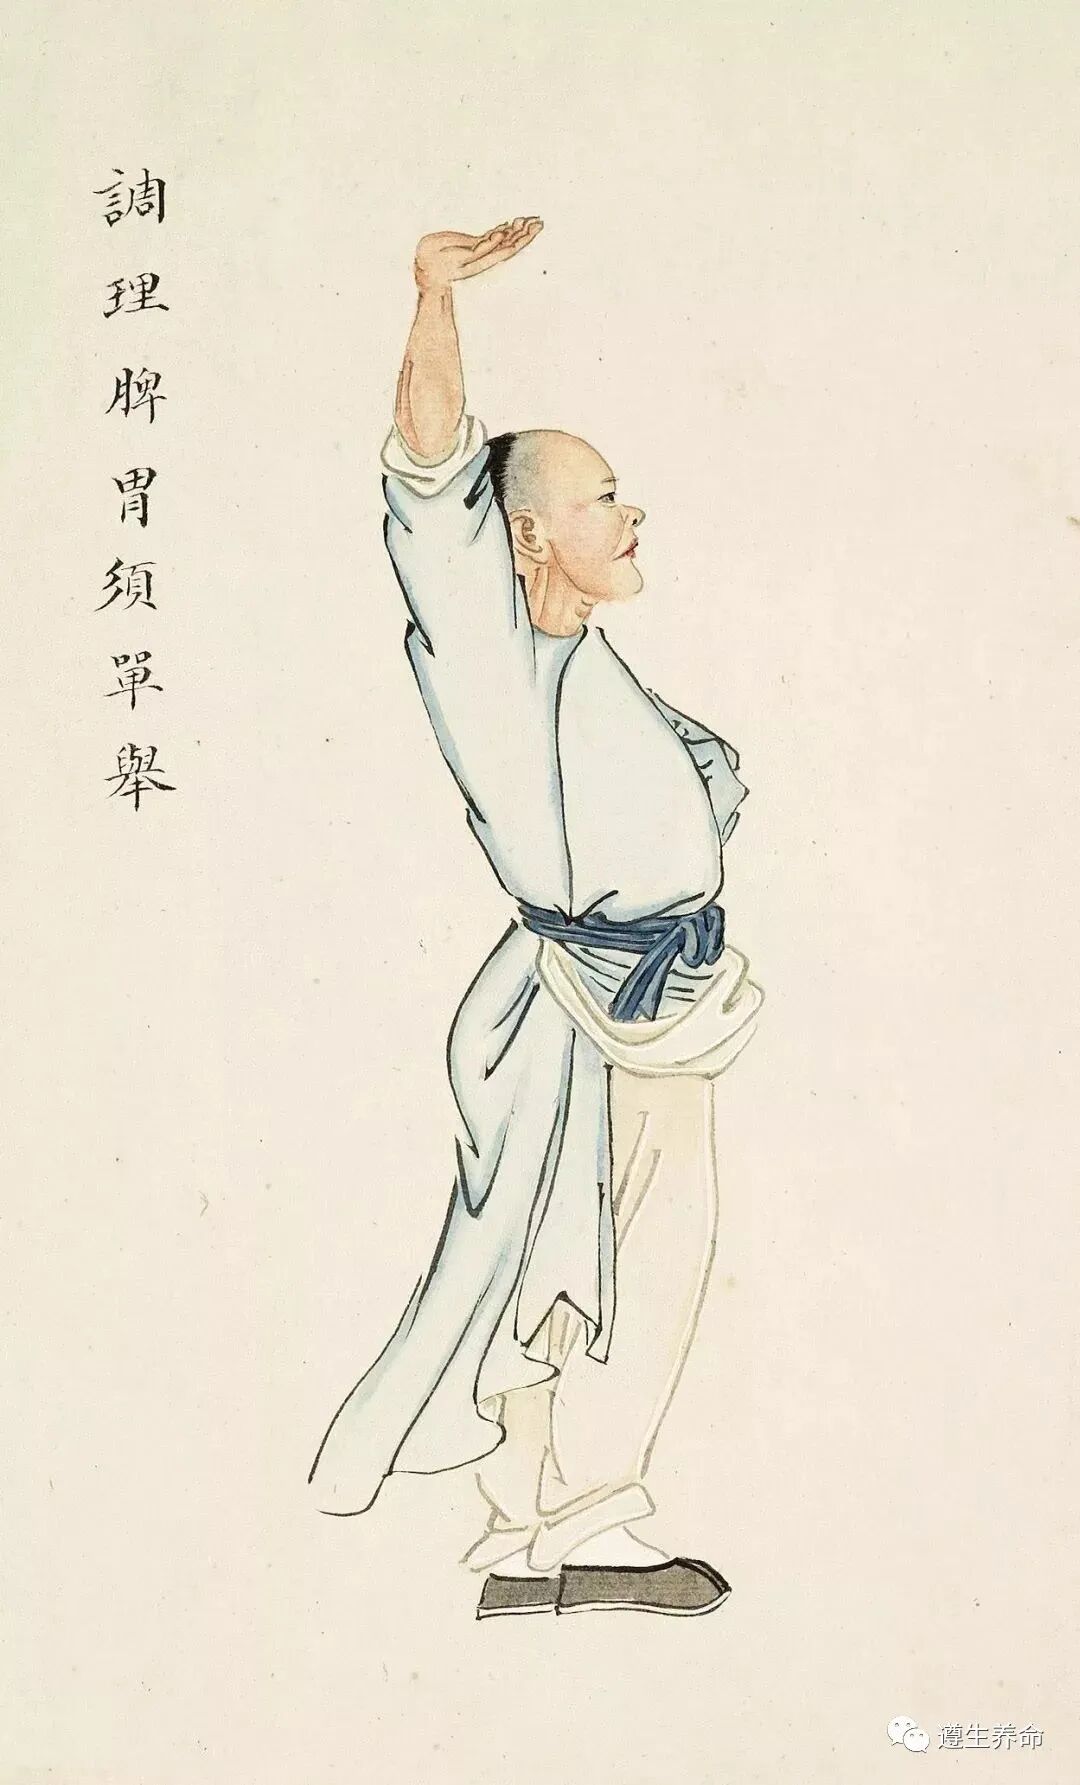 調理脾胃須單舉
遵生养命